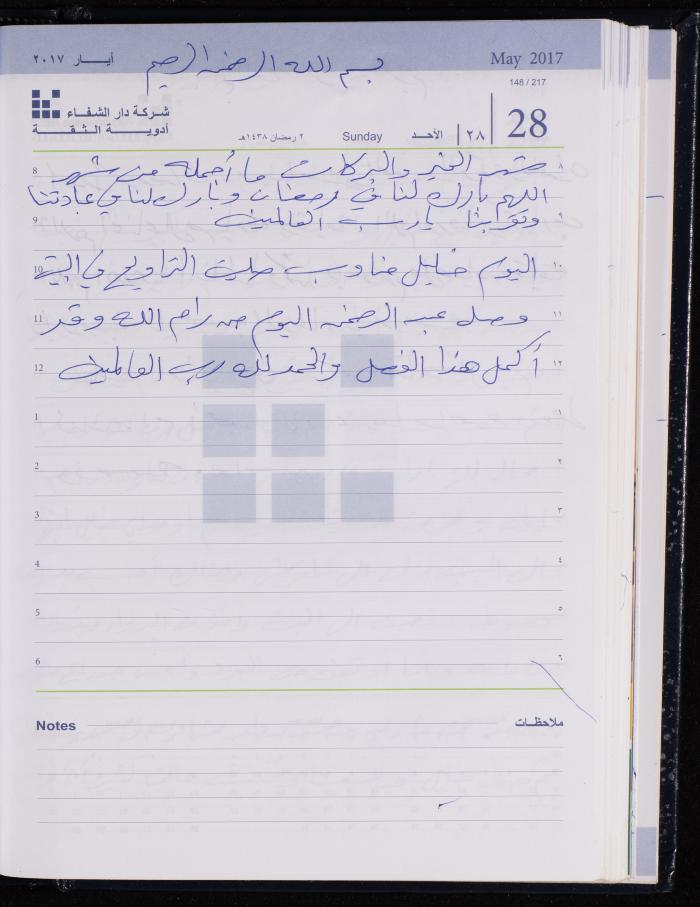 بسم الله الرحمن الرحيم
أيـــار ٢٠١٧
May 2017
148 / 217
شركة دار الشفاء
أدويـــة الـثـقـة
٢ رمضان ١٤٣٨هـ
Sunday
الأحــد
٢٨
28
8 شهر الخير والبركات ما أجمله من شهر ٨
اللهم بارك لنا في رمضان وبارك لنا في عبادتنا
9 يارب العالمين ٩
10 اليوم صليت التراويح في البيت ١٠
11 وصل عبد الرحمن اليوم من رام الله وقد ١١
12 أكمل هذا الفصل والحمد لله رب العالمين ١٢
1 ١
2 ٢
3 ٣
4 ٤
5 ٥
6 ٦
Notes ملاحظــات